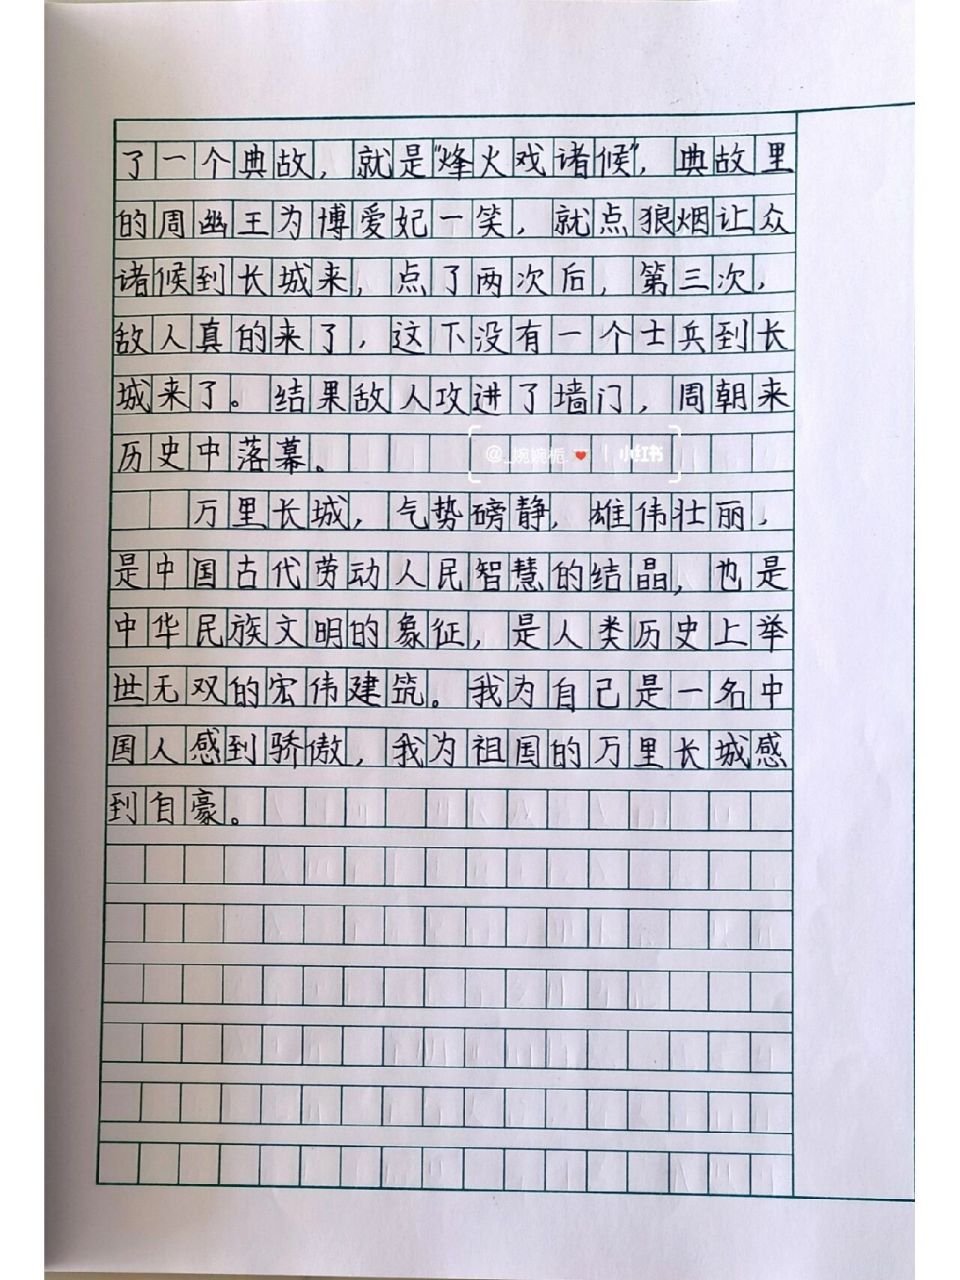 了一个典故，就是“烽火戏诸候”，典故里
的周幽王为博爱妃一笑，就点狼烟让众
诸候到长城来，点了两次后，第三次，
敌人真的来了，这下没有一个士兵到长
城来了。结果敌人攻进了墙门，周朝来
历史中落幕。
@_婉婉栀 ❤ | 小红书
万里长城，气势磅静，雄伟壮丽，
是中国古代劳动人民智慧的结晶，也是
中华民族文明的象征，是人类历史上举
世无双的宏伟建筑。我为自己是一名中
国人感到骄傲，我为祖国的万里长城感
到自豪。